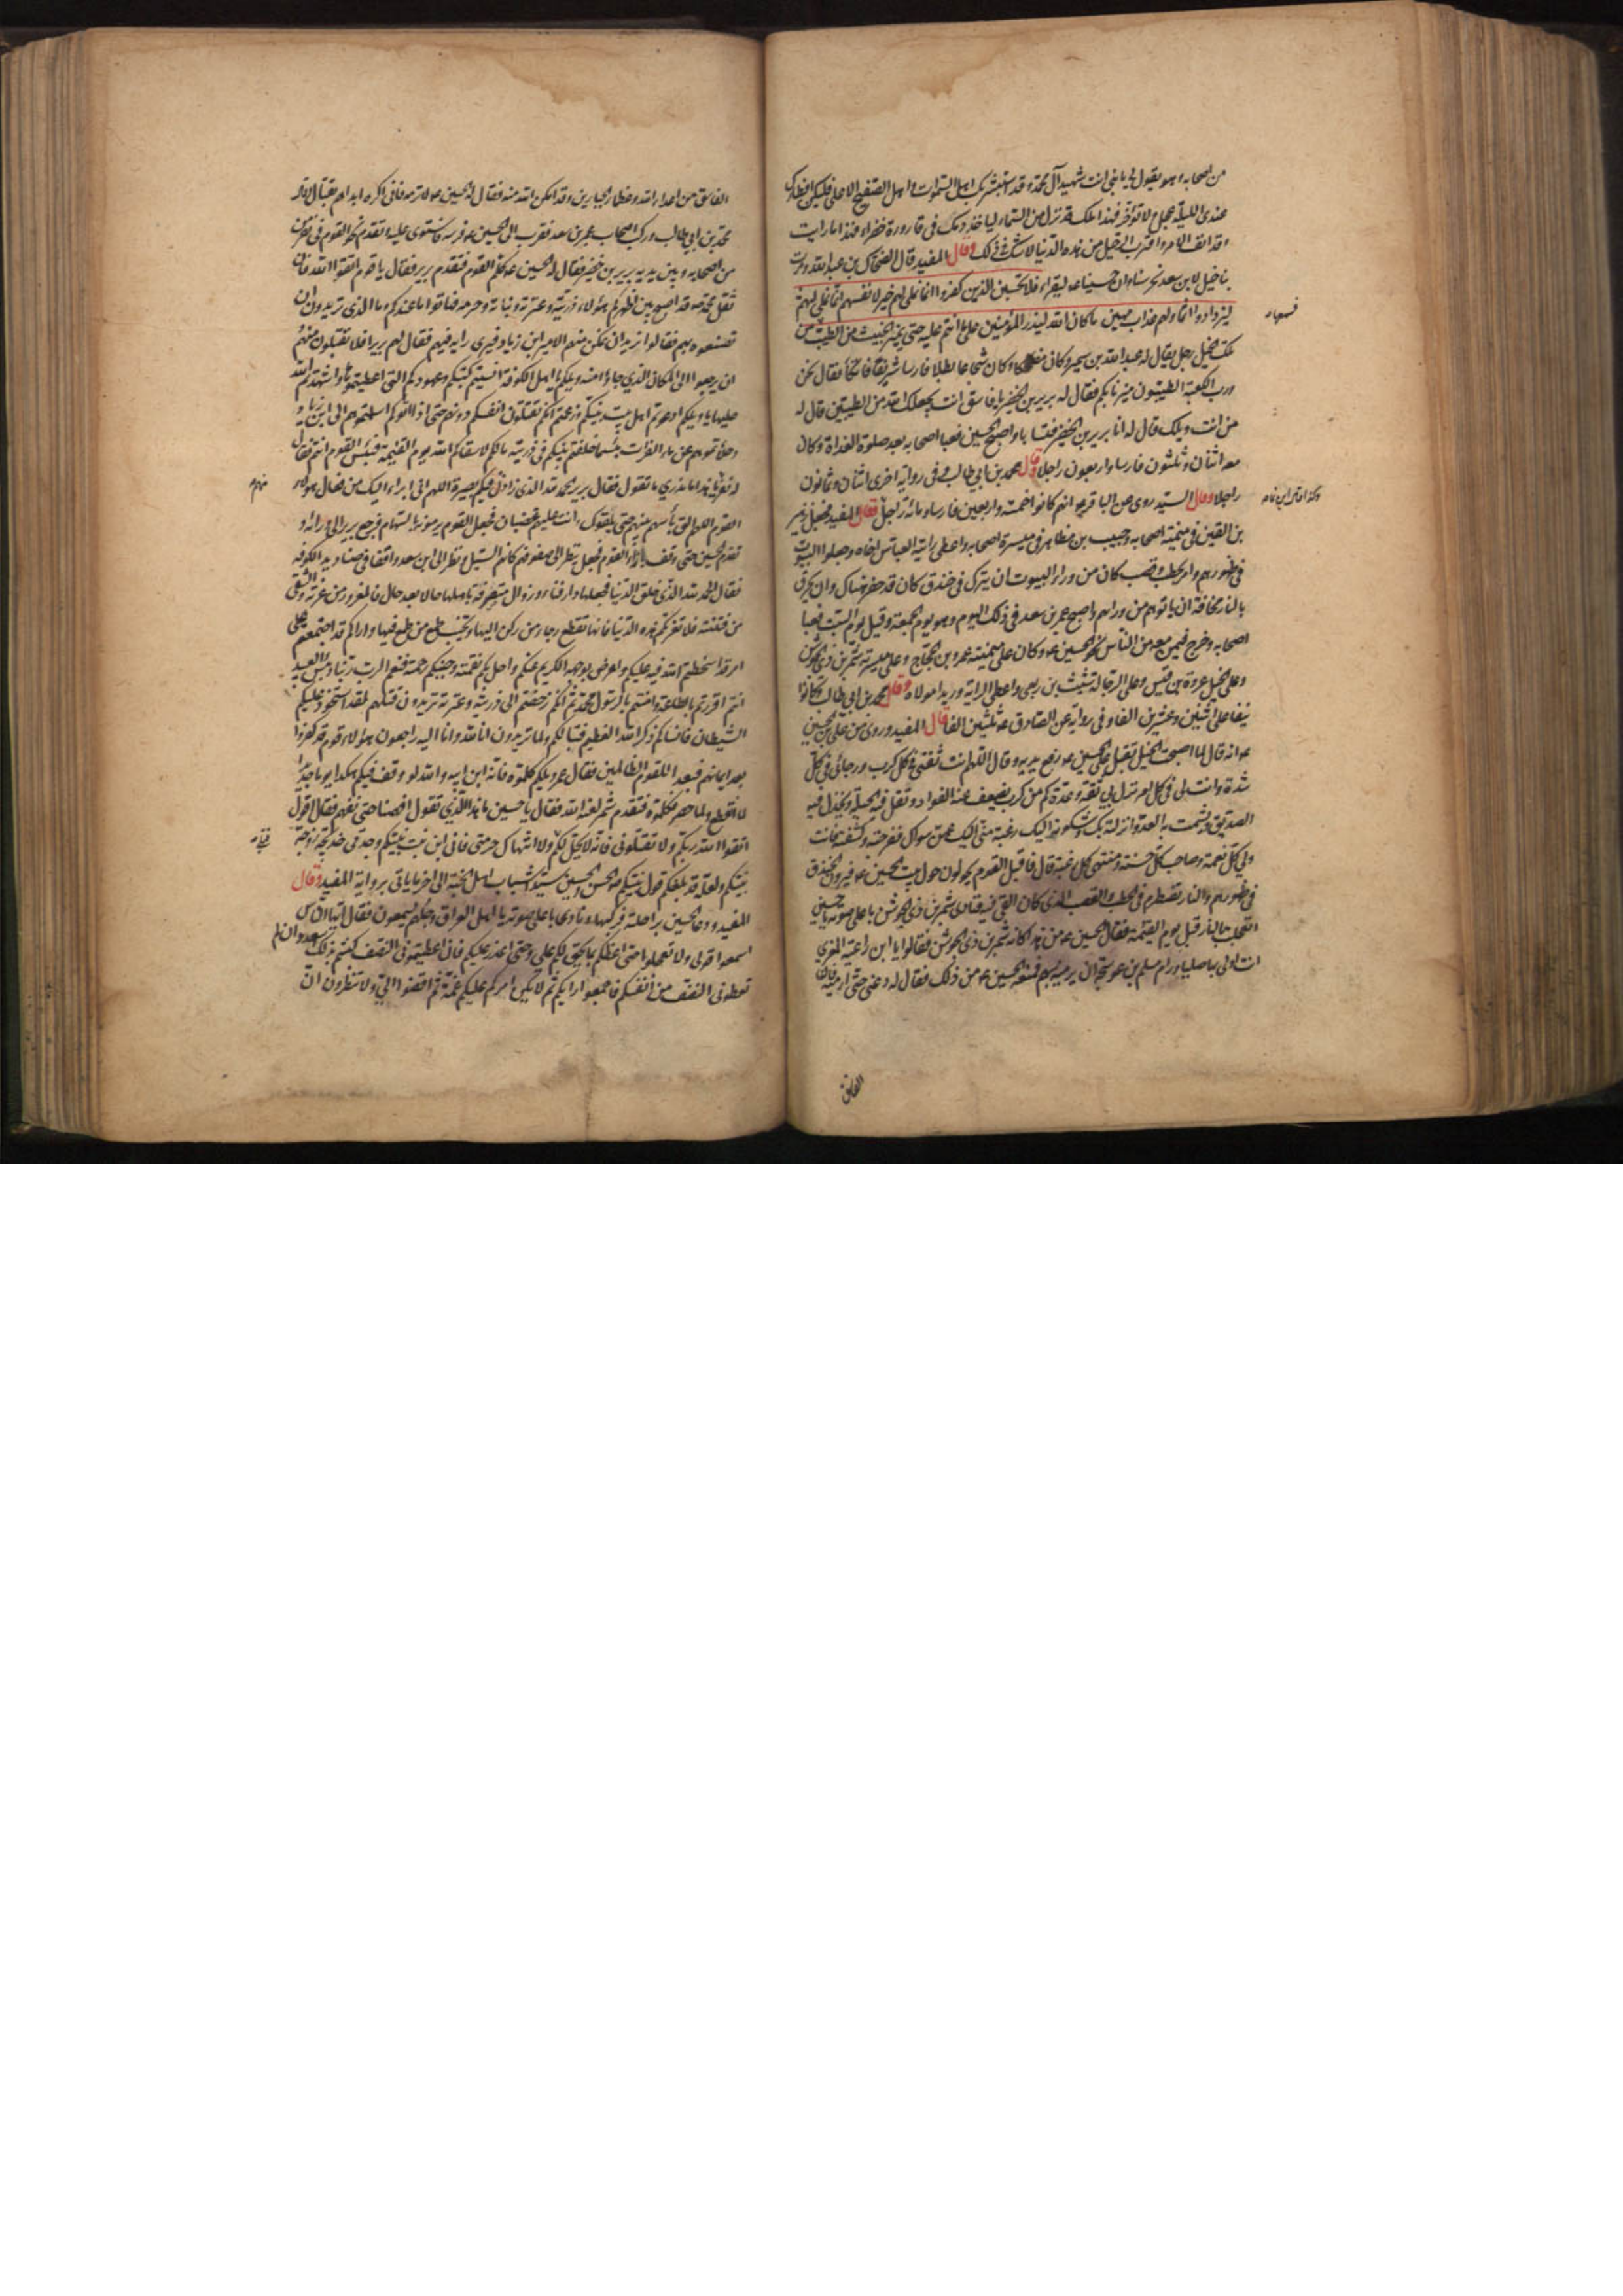 من اصحابه وهو يقول لي يا بني انت شهيد آل محمد وقد استبشر بك اهل السموات واهل الصفيح الاعلى فليكن افطارك
عندي الليلة عجل ولا تؤخر فهذا ملك قد نزل من السماء لياخذ دمك في قارورة خضراء فهذا ما رايت
وقد انف الامر واقترب الرحيل من هذه الدنيا لا شك في ذلك وقال المفيد قال الضحاك بن عبد الله ومرت
بنا خيل لابن سعد تحرسنا وان حسينا ع ليقراء فلا تحسبن الذين كفروا انما نملي لهم خير لانفسهم انما نملي لهم
ليزدادوا اثما ولهم عذاب مهين ما كان الله ليذر المؤمنين على ما انتم عليه حتى يميز الخبيث من الطيب
فسمعها من
تلك الخيل رجل يقال له عبد الله بن سمير وكان مضحاكا وكان شجاعا بطلا فارسا شريفا فاتكا فقال نحن
ورب الكعبة الطيبون ميزنا بكم فقال له برير بن الخضير يا فاسق انت يجعلك الله من الطيبين قال له
من انت ويلك قال له انا برير بن الخضير فتسابا واصبح الحسين فعبا اصحابه بعد صلوة الغداة وكان
معه اثنان وثلثون فارسا واربعون راجلا وقال محمد بن ابي طالب وفي رواية اخرى اثنان وثمانون
راجلا وقال السيد روي عن الباقر ع انهم كانوا خمسة واربعين فارسا ومائة راجل فقال المفيد فجعل زهير
وكذا قال ابن نما
بن القين في ميمنة اصحابه وحبيب بن مظاهر في ميسرة اصحابه واعطى رايته العباس اخاه وجعلوا البيوت
في ظهورهم وامر بحطب وقصب كان من وراء البيوت ان يترك في خندق كان قد حفر هناك وان يحرق
بالنار مخافة ان ياتوهم من ورائهم واصبح عمر بن سعد في ذلك اليوم وهو يوم الجمعة وقيل يوم السبت فعبا
اصحابه وخرج فيمن معه من الناس نحو الحسين ع وكان على ميمنته عمرو بن الحجاج وعلى ميسرته شمر بن ذي الجوشن
وعلى الخيل عروة بن قيس وعلى الرجالة شبث بن ربعي واعطى الراية دريدا مولاه وقال محمد بن ابي طالب وكانوا
نيفا على اثنين وعشرين الفا وفي رواية عن الصادق ع ثلثين الفا قال المفيد وروي عن علي بن الحسين
ع انه قال لما اصبحت الخيل تقبل على الحسين ع رفع يديه وقال اللهم انت ثقتي في كل كرب ورجائي في كل
شدة وانت لي في كل امر نزل بي ثقة وعدة كم من كرب يضعف عنه الفواد وتقل فيه الحيلة ويخذل فيه
الصديق ويشمت به العدو انزلته بك وشكوته اليك رغبة مني اليك عمن سواك ففرجته وكشفته فانت
ولي كل نعمة وصاحب كل حسنة ومنتهى كل رغبة قال فاقبل القوم يجولون حول بيت الحسين ع فيرون الخندق
في ظهورهم والنار تضطرم في الحطب والقصب الذي كان القي فيه فنادى شمر بن ذي الجوشن باعلى صوته يا حسين
اتعجلت بالنار قبل يوم القيمة فقال الحسين ع من هذا كانه شمر بن ذي الجوشن فقالوا يا ابن راعية المعزى
انت اولى بها صليا ورام مسلم بن عوسجة ان يرميه بسهم فمنعه الحسين ع من ذلك فقال له دعني حتى ارميه فان
الفاسق
الفاسق من اعداء الله وعظماء الجبارين وقد امكن الله منه فقال له الحسين ع لا ترمه فاني اكره ان ابداهم بقتال وقال
محمد بن ابي طالب وركب اصحاب عمر بن سعد فقرب الى الحسين ع فرسه فاستوى عليه وتقدم نحو القوم في نفر
من اصحابه وبين يديه برير بن خضير فقال له الحسين ع كلم القوم فتقدم برير فقال يا قوم اتقوا الله فان
ثقل محمد ص قد اصبح بين اظهركم هؤلاء ذريته وعترته وبناته وحرمه فهاتوا ما عندكم وما الذي تريدون ان
تصنعوه بهم فقالوا نريد ان نمكن منهم الامير ابن زياد فيرى رايه فيهم فقال لهم برير افلا تقبلون منهم
ان يرجعوا الى المكان الذي جاؤا منه ويلكم يا اهل الكوفة انسيتم كتبكم وعهودكم التي اعطيتموها واشهدتم الله
عليها يا ويلكم ادعوتم اهل بيت نبيكم وزعمتم انكم تقتلون انفسكم دونهم حتى اذا اتوكم اسلمتموهم الى ابن زياد
وحلاتموهم عن ماء الفرات بئسما خلفتم نبيكم في ذريته ما لكم لا سقاكم الله يوم القيمة فبئس القوم انتم فقال
له نفر منهم يا هذا ما ندري ما تقول فقال برير الحمد لله الذي زادني فيكم بصيرة اللهم اني ابراء اليك من فعال هؤلاء
القوم اللهم الق باسهم بينهم حتى يلقوك وانت عليهم غضبان فجعل القوم يرمونه بالسهام فرجع برير الى ورائه و
تقدم الحسين حتى وقف بازاء القوم فجعل ينظر الى صفوفهم كانهم السيل ونظر الى ابن سعد واقفا في صناديد الكوفة
فقال الحمد لله الذي خلق الدنيا فجعلها دار فناء وزوال متصرفة باهلها حالا بعد حال فالمغرور من غرته والشقي
من فتنته فلا تغرنكم هذه الدنيا فانها تقطع رجاء من ركن اليها وتخيب طمع من طمع فيها واراكم قد اجتمعتم على
امر قد اسخطتم الله فيه عليكم واعرض بوجهه الكريم عنكم واحل بكم نقمته وجنبكم رحمته فنعم الرب ربنا وبئس العبيد
انتم اقررتم بالطاعة وامنتم بالرسول محمد ثم انكم زحفتم الى ذريته وعترته تريدون قتلهم لقد استحوذ عليكم
الشيطان فانساكم ذكر الله العظيم فتبا لكم ولما تريدون انا لله وانا اليه راجعون هؤلاء قوم قد كفروا
بعد ايمانهم فبعدا للقوم الظالمين فقال عمر ويلكم كلموه فانه ابن ابيه والله لو وقف فيكم هكذا يوما جديدا
لما انقطع ولما حصر فكلموه فتقدم شمر لعنه الله فقال يا حسين ما هذا الذي تقول افهمنا حتى نفهم فقال اقول
اتقوا الله ربكم ولا تقتلوني فانه لا يحل لكم قتلي ولا انتهاك حرمتي فاني ابن بنت نبيكم وجدتي خديجة زوجة
نبيكم ولعله قد بلغكم قول نبيكم ص الحسن والحسين سيدا شباب اهل الجنة الى اخر ما ياتي برواية المفيد وقال
المفيد ودعا الحسين براحلته فركبها ونادى باعلى صوته يا اهل العراق وجلهم يسمعون فقال ايها الناس
اسمعوا قولي ولا تعجلوا حتى اعظكم بما يحق لكم علي وحتى اعذر عليكم فان اعطيتموني النصف كنتم بذلك اسعد وان لم
تعطوني النصف من انفسكم فاجمعوا رايكم ثم لا يكن امركم عليكم غمة ثم اقضوا الي ولا تنظرون ان